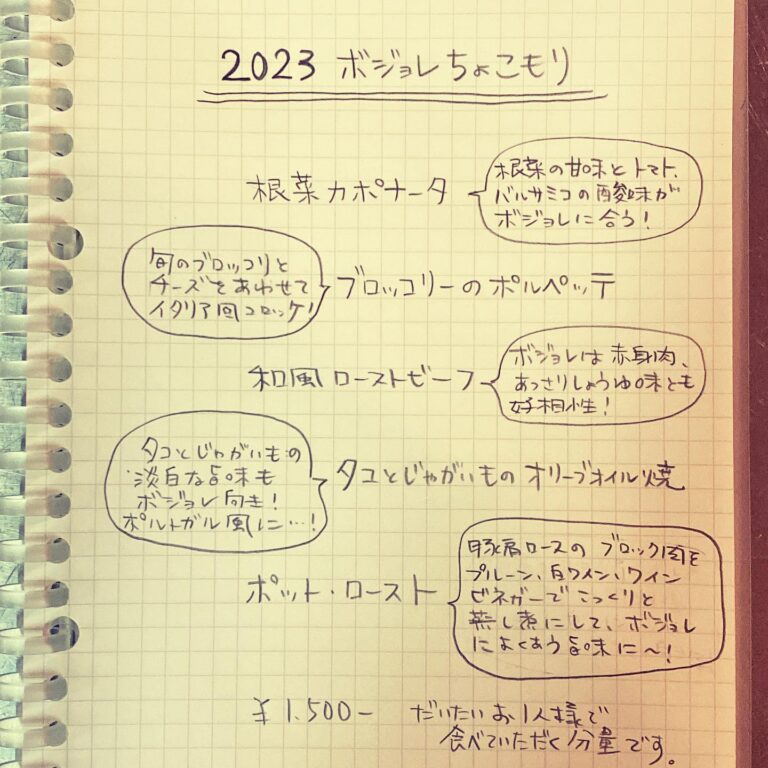 2023 ボジョレちょこもり
根菜カポナータ
根菜の甘味とトマト、
バルサミコの酸味が
ボジョレに合う!
旬のブロッコリと
チーズをあわせて
イタリア風コロッケ!
ブロッコリーのポルペッテ
和風ローストビーフ
ボジョレは赤身肉、
あっさりしょうゆ味とも
好相性!
タコとじゃがいもの
淡白な旨味も
ボジョレ向き!
ポルトガル風に…!
タコとじゃがいものオリーブオイル焼
ポット・ロースト
豚肩ロースのブロック肉を
プルーン、白ワイン、ワイン
ビネガーでこっくりと
蒸し煮にして、ボジョレ
によくあう旨味に〜!
¥1.500- だいたいお1人様で
食べていただく分量です。